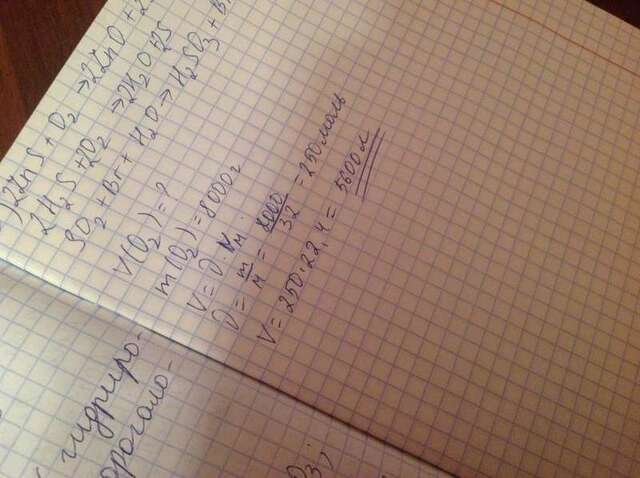 ) 2ZnS + O2 → 2ZnO + 2
2H2S + 2O2 → 2H2O + 2S
SO2 + Br + H2O → H2SO3 + Br
V(O2) = ?
m(O2) = 8000г
V = ∂ · Vм.
∂ = m/M = 8000/32 = 250 моль
V = 250 · 22,4 = 5600 л
гидриро-
орогало-
O3;